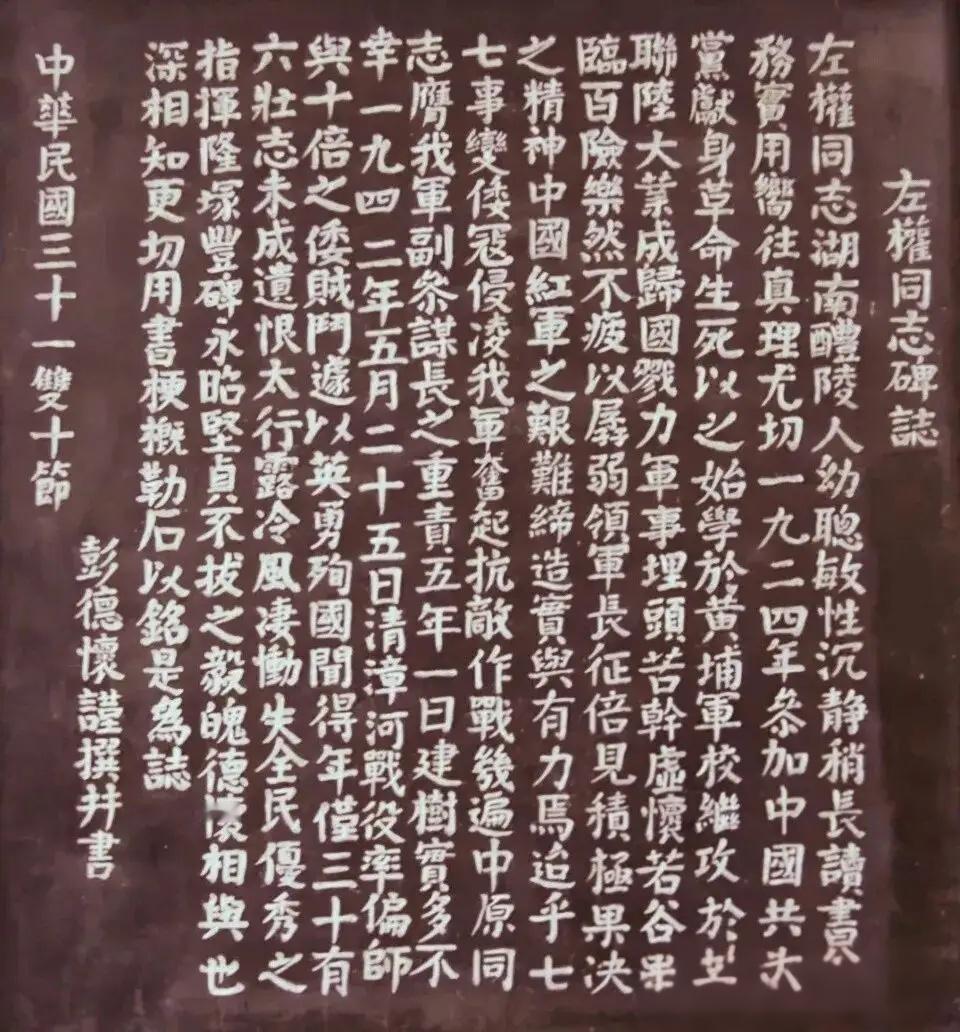 左權同志碑誌
左權同志湖南醴陵人幼聰敏性沉静稍長讀書
務實用嚮往真理尤切一九二四年叅加中國共
黨獻身革命生死以之始學於黃埔軍校繼攻於
聯陸大業成歸國戮力軍事埋頭苦幹虛懷若谷
臨百險樂然不疲以孱弱領軍長征倍見積極果决
之精神中國紅軍之艱難締造實與有力焉迨乎七
七事變倭寇侵凌我軍奮起抗敵作戰幾遍中原同
志膺我軍副叅謀長之重責五年一日建樹實多不
幸一九四二年五月二十五日清漳河戰役率偏師
與十倍之倭賊鬥遽以英勇殉國聞得年僅三十有
六壯志未成遺恨太行露冷風凄慟失全民優秀之
指揮隆塚豐碑永昭堅貞不拔之毅魄德懷相與也
深相知更切用書梗概勒石以銘是為誌
彭德懷謹撰并書
中華民國三十一雙十節